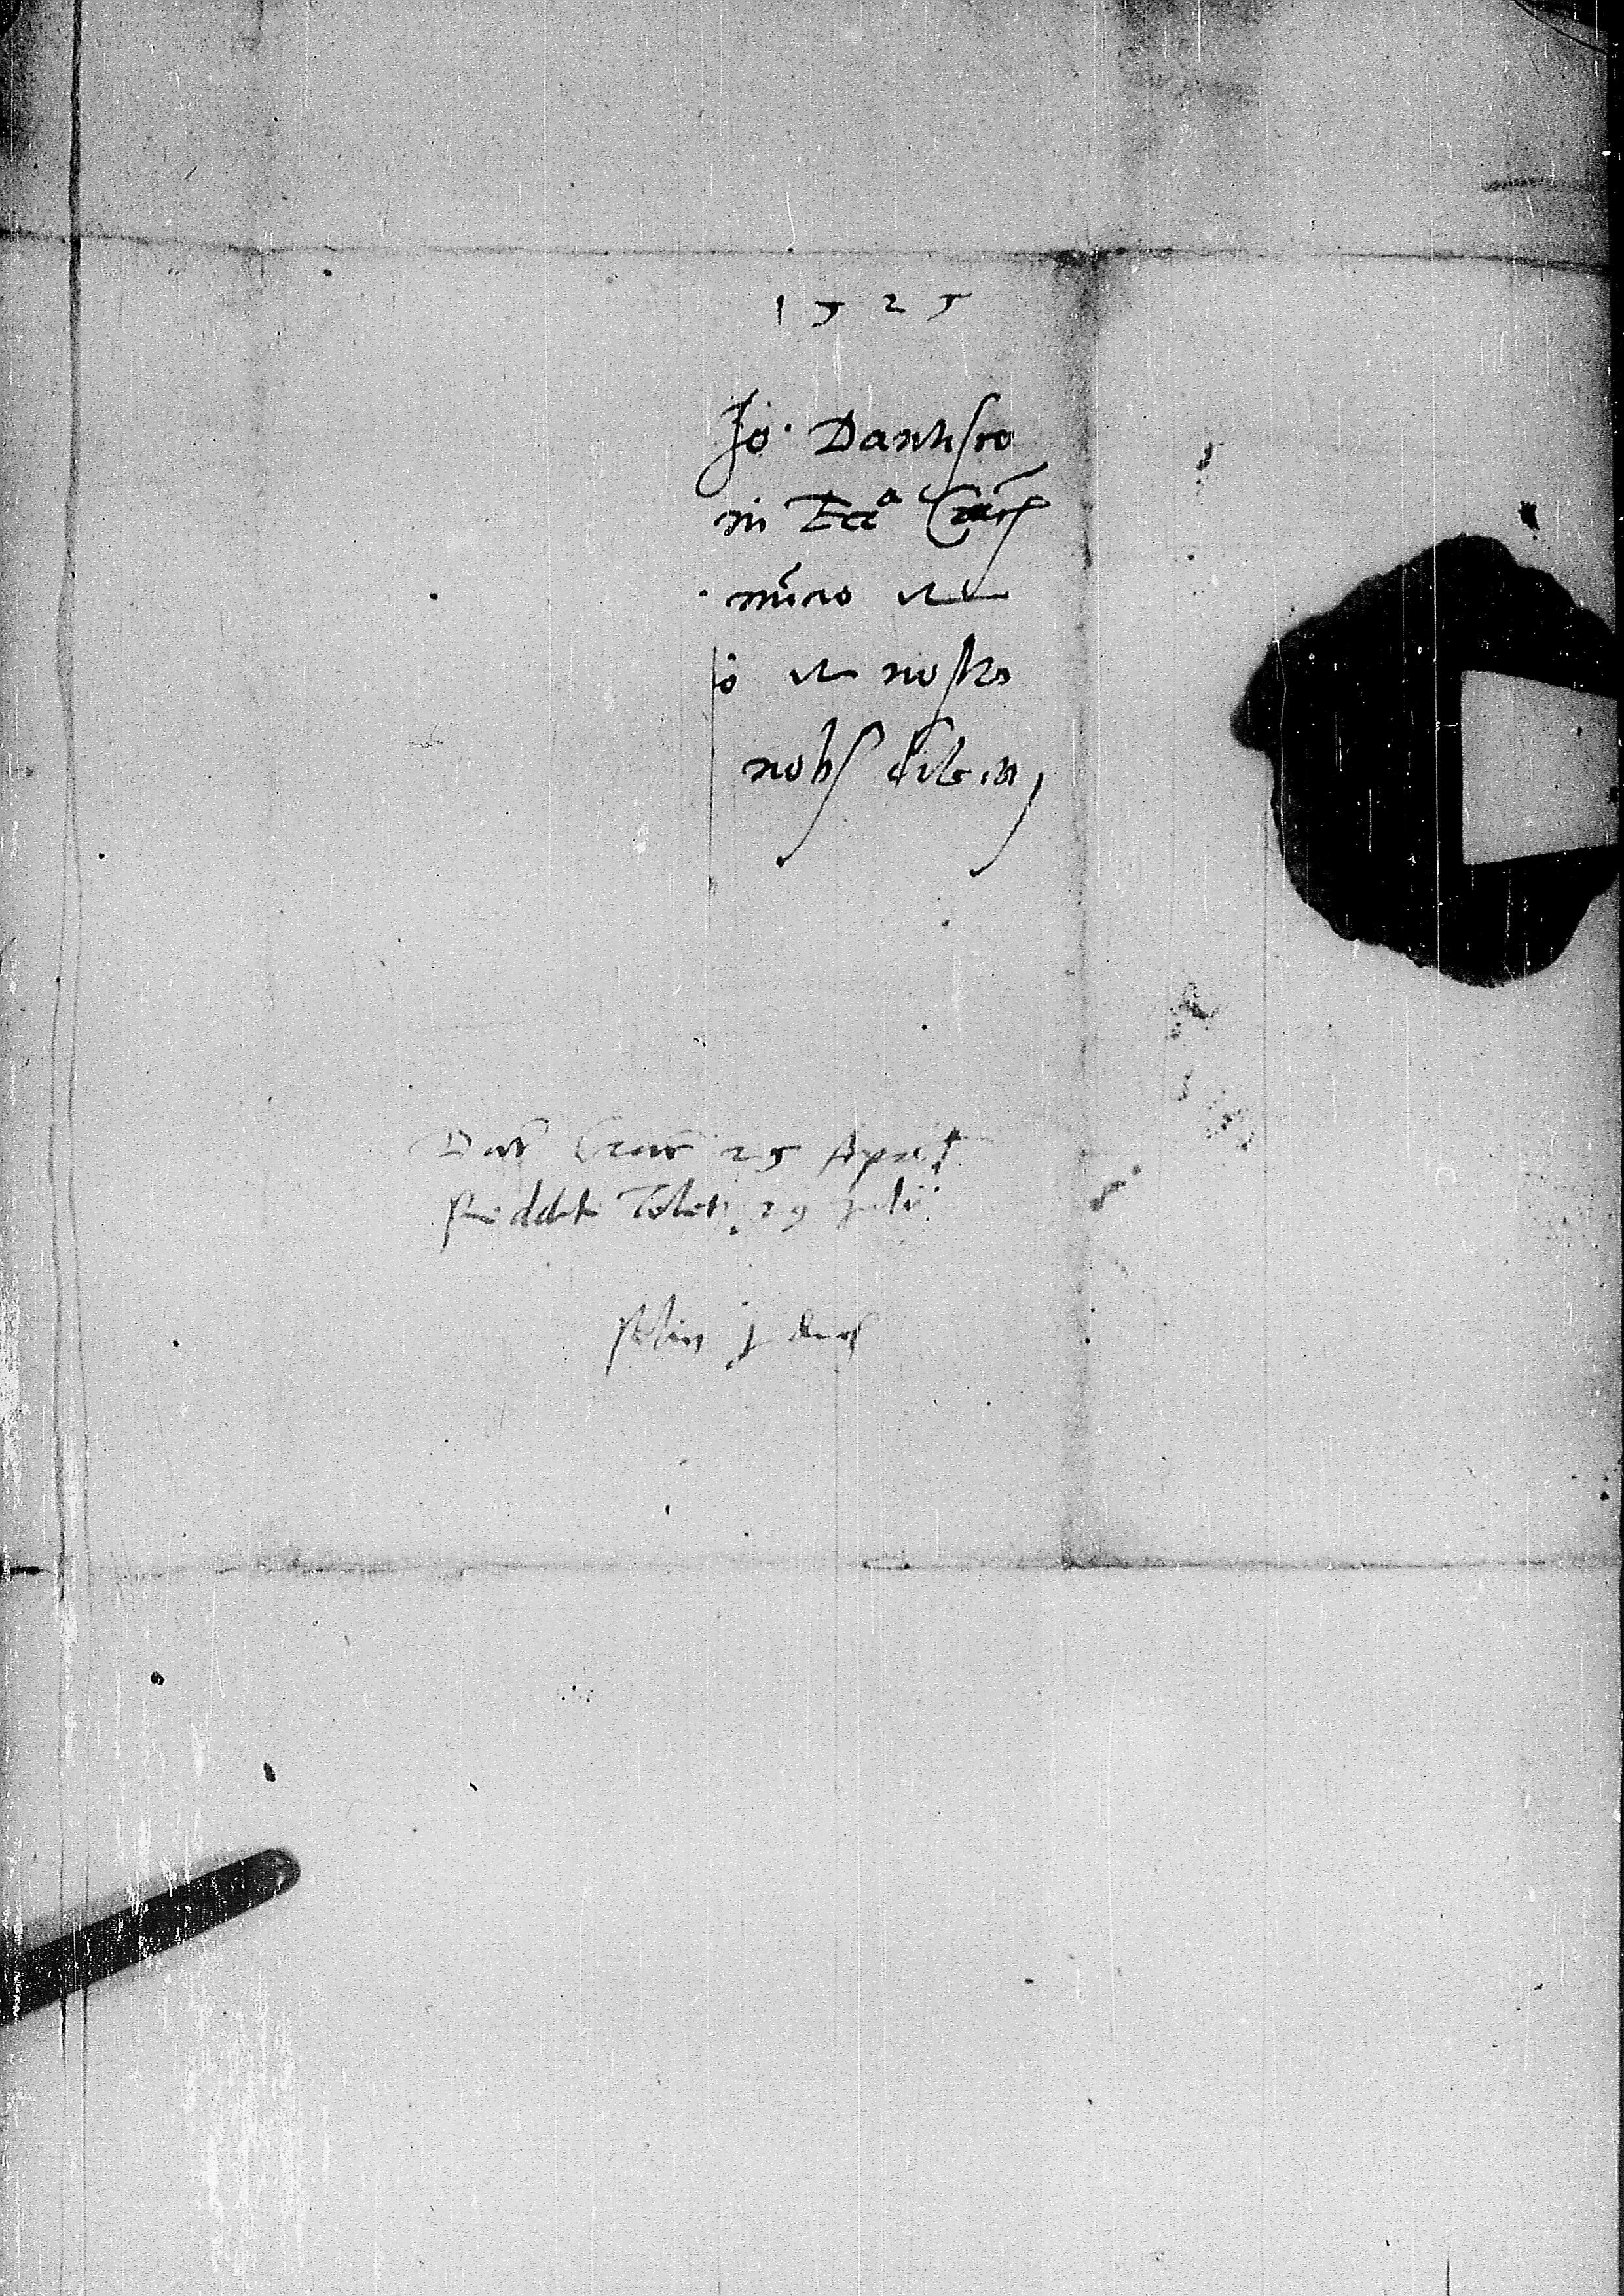 1525
Jo. Dantisco
in Ecca
et
o et nostro
nobis dilecto
Dat Crac 25 April
Reddite Toleti 29 Julii